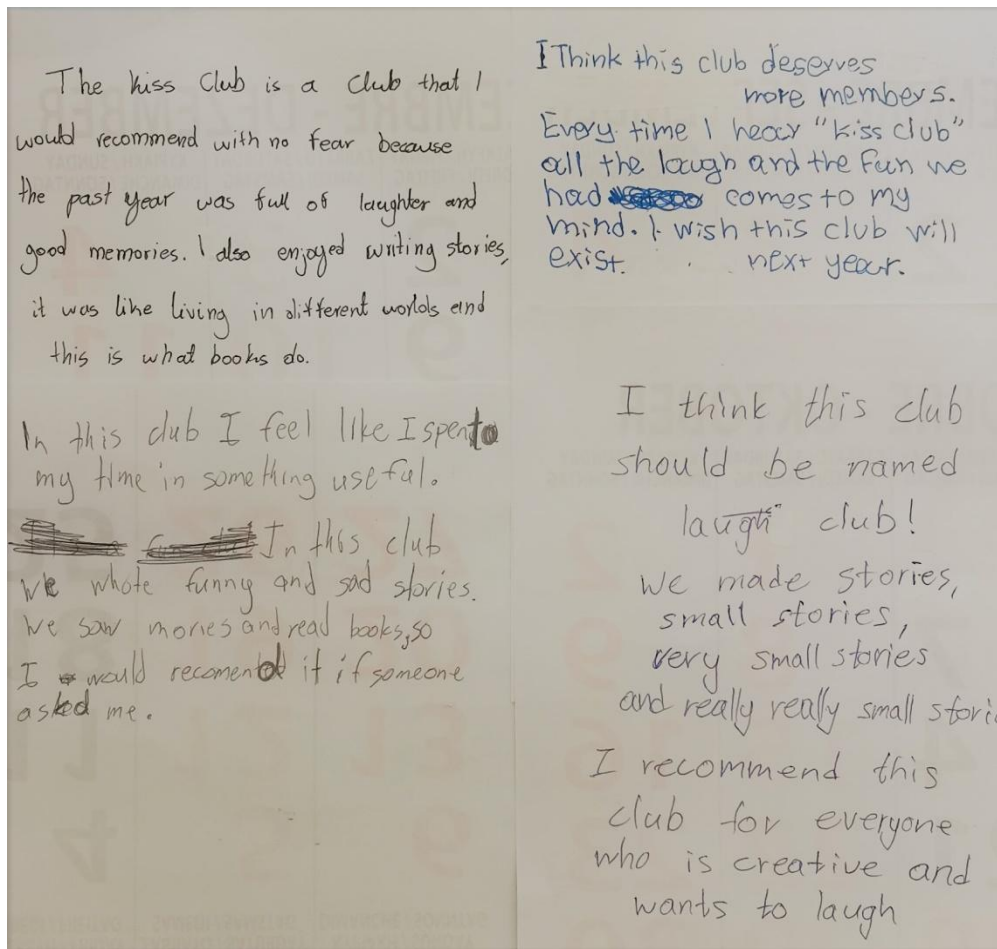 The Kiss Club is a Club that I
would recommend with no fear because
the past year was full of laughter and
good memories. I also enjoyed writing stories,
it was like living in different worlds and
this is what books do.
In this club I feel like I spent
my time in something useful.
In this club
we whote funny and sad stories.
We saw movies and read books, so
I would recomend it if someone
asked me.
I Think this club deserves
more members.
Every time I hear "kiss club"
all the laugh and the fun we
had comes to my
mind. I wish this club will
exist. next year.
I think this club
should be named
laugh club!
We made stories,
small stories,
very small stories
and really really small stori
I recommend this
club for everyone
who is creative and
wants to laugh